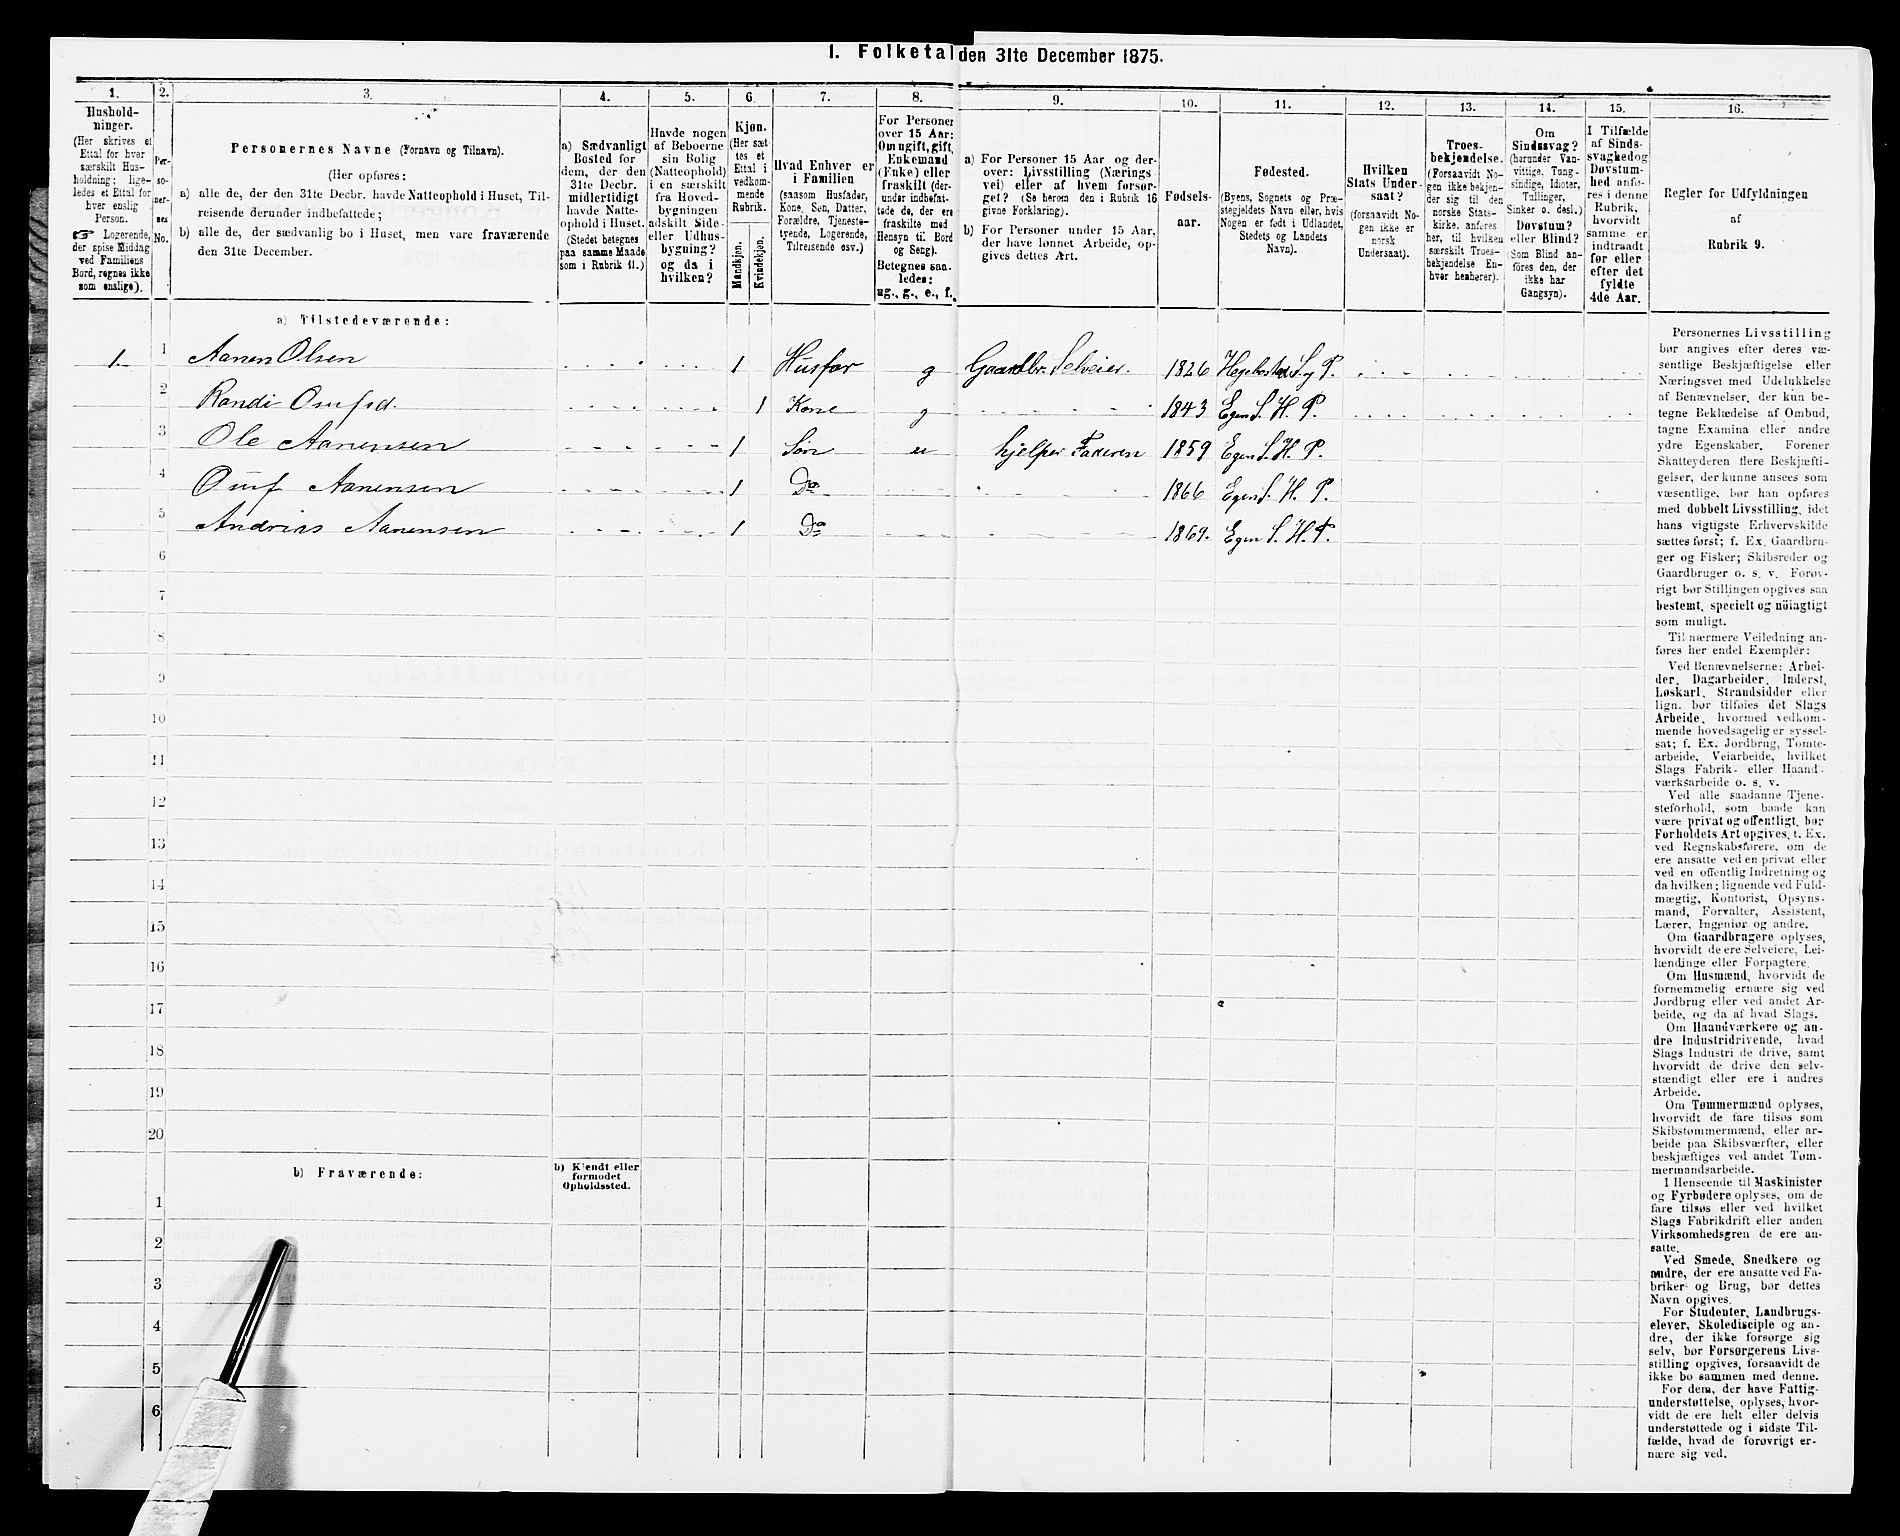 1. Folketal den 31te December 1875.
1.
Hushold-
ninger.
(Her skrives et
Ettal for hver
særskilt Hus-
holdning; lige-
ledes et Ettal for
hver enslig
Person.
☞ Logerende,
der spise Middag
ved Familiens
Bord, regnes ikke
som enslige).
2.
Per-
so-
ner-
nes
No.
3.
Personernes Navne (Fornavn og Tilnavn).
(Her opføres:
a) alle de, der den 31te Decbr. havde Natteophold i Huset, Til-
reisende derunder indbefattede;
b) alle de, der sædvanlig bo i Huset, men vare fraværende
den 31te December.
4.
a) Sædvanligt
Bosted for
dem, der den
31te Decbr.
midlertidigt
havde Natte-
ophold i Huset.
(Stedet betegnes
paa samme Maade
som i Rubrik 11.)
5.
Havde nogen
af Beboerne
sin Bolig
(Natteophold)
i en særskilt
fra Hoved-
bygningen
adskilt Side-
eller Udhus-
bygning?
og da i
hvilken?
6.
Kjøn.
(Her sæt
tes et
Ettal i
vedkom-
mende
Rubrik.
Mandkjøn.
Kvindekjøn.
7.
Hvad Enhver er
i Familien
(saasom Husfader,
Kone, Søn, Datter,
Forældre, Tjeneste-
tyende, Logerende,
Tilreisende osv.)
8.
For Personer
over 15 Aar:
Om ugift, gift,
Enkemand
(Enke) eller
fraskilt (der-
under indbefat-
tede de, der ere
fraskilte med
Hensyn til Bord
og Seng).
Betegnes saa-
ledes:
ug., g., e., f.
9.
a) For Personer 15 Aar og der-
over: Livsstilling (Nærings
vei) eller af hvem forsør-
get? (Se herom den i Rubrik 16
givne Forklaring).
b) For Personer under 15 Aar,
der have lønnet Arbeide, op-
gives dettes Art.
10.
Fødsels-
aar.
11.
Fødested.
(Byens, Sognets og Præ-
stegjeldets Navn eller, hvis
Nogen er født i Udlandet,
Stedets og Landets
Navn).
12.
Hvilken
Stats Under-
saat?
(forsaavidt No-
gen ikke er
norsk
Undersaat).
13.
Troes-
bekjendelse.
(Forsaavidt No-
gen ikke bekjen-
der sig til den
norske Stats-
kirke, anføres
her, til hvilken
særskilt Troes-
bekjendelse En-
hver henhører).
14.
Om
Sindssvag?
(herunder Van-
vittige, Tung-
sindige, Idioter,
Tullinger,
Sinker o. desl.)
Døvstum?
eller Blind?
(Som Blind an-
føres den, der
ikke har
Gangsyn).
15.
I Tilfælde
af Sinds-
svaghed og
Døvstum-
hed anfø-
res i denne
Rubrik,
hvorvidt
samme er
indtraadt
før eller
efter det
fyldte
4de Aar.
16.
Regler for Udfyldningen
af
Rubrik 9.
a) Tilstedeværende:
1. 1 Aanen Olsen 1 Husfar g Gaardbr. Selveier. 1826 Hegebostad S. og P.
2 Randi Omfsd. 1 Kone g 1843 Egen S. H. P.
3 Ole Aanensen 1 Søn hjelper Faderen 1859 Egen S. H. P.
4 Aanensen 1 Do 1866 Egen S. H. P.
5 Andrias Aanensen 1 Do 1869. Egen S. H. P.
6
7
8
9
10
11
12
13
14
15
16
17
18
19
20
b) Fraværende:
b) Kjendt eller
formodet
Opholdssted.
1
2
3
4
5
6
Personernes Livsstilling
bør angives efter deres væ-
sentlige Beskjæftigelse eller
Næringsvei med Udelukkelse
af Benævnelser, der kun be-
tegne Beklædelse af Ombud,
tagne Examina eller andre
ydre Egenskaber. Forener
Skatteyderen flere Beskjæfti-
gelser, der kunne ansees som
væsentlige, bør han opføres
med dobbelt Livsstilling, idet
hans vigtigste Erhvervskilde
sættes først; f. Ex. Gaardbru-
ger og Fisker; Skibsreder og
Gaardbruger o. s. v. Forøv-
rigt bør Stillingen opgives saa
bestemt, specielt og nöiagtigt
som muligt.
Til nærmere Veiledning an-
føres her endel Exempler:
Ved Benævnelserne: Arbei-
der, Dagarbeider, Inderst,
Løskarl, Strandsidder eller
lign. bør tilføies det Slags
Arbeide, hvormed vedkom-
mende hovedsagelig er syssel-
sat; f. Ex. Jordbrug, Tomte-
arbeide, Veiarbeide, hvilket
Slags Fabrik- eller Haand-
værksarbeide o. s. v.
Ved alle saadanne Tjene-
steforhold, som baade kan
være privat og offentligt, bør
Forholdets Art opgives, t. Ex.
ved Regnskabsførere, om de
ere ansatte ved en privat eller
ved en offentlig Indretning og
da hvilken; lignende ved Fuld-
mægtig, Kontorist, Opsyns-
mand, Forvalter, Assistent,
Lærer, Ingeniør og andre.
Om Gaardbrugere oplyses,
hvorvidt de ere Selveiere, Lei-
lændinge eller Forpagtere.
Om Husmænd, hvorvidt de
fornemmelig ernære sig ved
Jordbrug eller ved andet Ar-
beide, og da af hvad Slags.
Om Haandværkere og an-
dre Industridrivende, hvad
Slags Industri de drive, samt
hvorvidt de drive den selv-
stændigt eller ere i andres
Arbeide.
Om Tømmermænd oplyses,
hvorvidt de fare tilsøs som
Skibstømmermænd, eller ar-
beide paa Skibsværfter, eller
beskjæftiges ved andet Tøm-
mermandsarbeide.
I Henseende til Maskinister
og Fyrbødere oplyses, om de
fare tilsøs eller ved hvilket
Slags Fabrikdrift eller anden
Virksomhedsgren de ere an-
satte.
Ved Smede, Snedkere og
andre, der ere ansatte ved Fa-
briker og Brug, bør dettes
Navn opgives.
For Studenter, Landbrugs-
elever, Skoledisciple og an-
dre, der ikke forsørge sig
selv, bør Forsørgerens Livs-
stilling opgives, forsaavidt de
ikke bo sammen med denne.
For dem, der have Fattig-
understøttelse, oplyses, hvor-
vidt de ere helt eller delvis
understøttede og i sidste Til-
fælde, hvad de forøvrigt er-
nære sig ved.